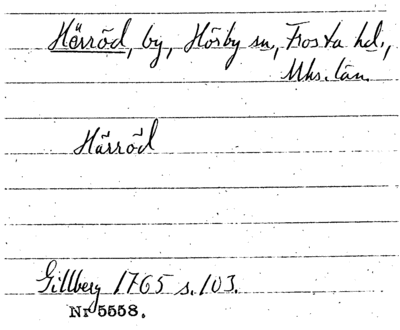 Härröd, by, Hörby sn, Frosta hd.,
Mhs. län.
Härröd
Gillberg 1765 s. 103.
Nr 5558.